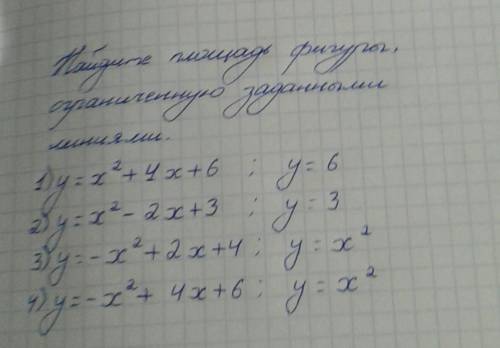 Найдите площадь фигуры,
ограниченную заданными
линиями.
1) y = x² + 4x + 6 ; y = 6
2) y = x² - 2x + 3 ; y = 3
3) y = -x² + 2x + 4 ; y = x²
4) y = -x² + 4x + 6 ; y = x²